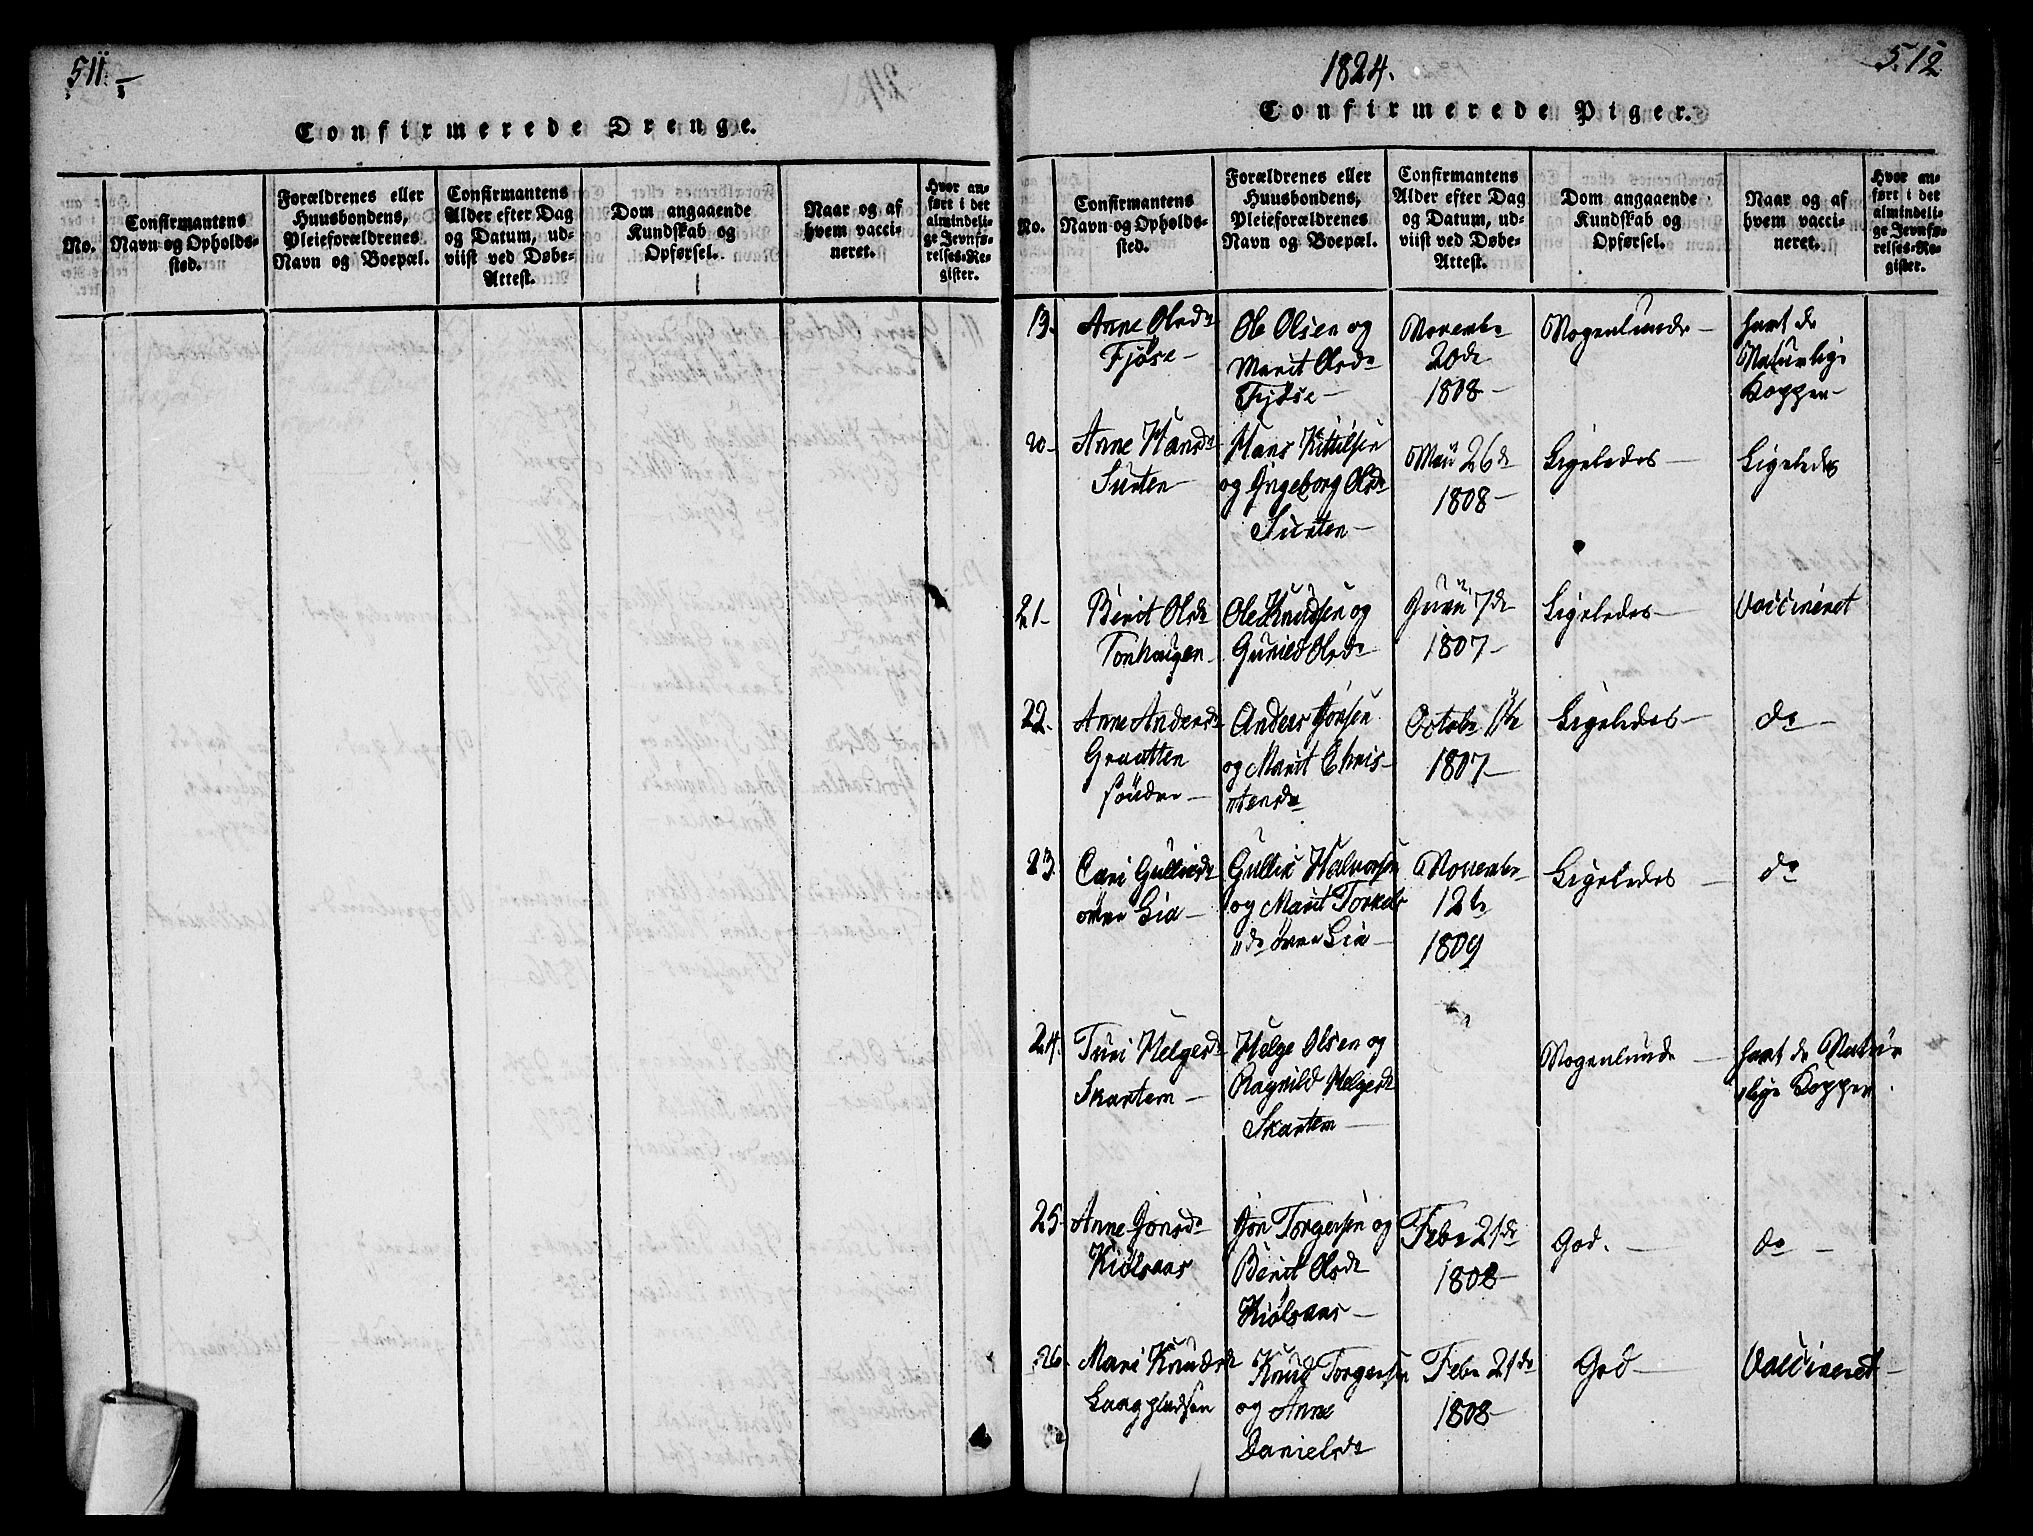 511.
Confirmerede Drenge.
No.
Confirmantens
Navn og Opholds-
sted.
Forældrenes eller
Huusbondens,
Pleieforældrenes
Navn og Boepæl.
Confirmantens
Alder efter Dag
og Datum, ud-
viist ved Døbe-
Attest.
Dom angaaende
Kundskab og
Opførsel.
Naar og af
hvem vacci-
neret.
Hvor an-
ført i det
almindeli-
ge Jevnfø-
relses-Re-
gister.
1824.
512
Confirmerede Piger.
No.
Confirmantens
Navn og Opholds-
sted.
Forældrenes eller
Huusbondens,
Pleieforældrenes
Navn og Boepæl.
Confirmantens
Alder efter Dag
og Datum, ud-
viist ved Døbe-
Attest.
Dom angaaende
Kundskab og
Opførsel.
Naar og af
hvem vacci-
neret.
Hvor an-
ført i det
almindeli-
ge Jevnfø-
relses-Re-
gister.
19.
Anne Olsda
Fjøse -
Ole Olsen og
Marit Olsda
Fjøse -
Novembr
20de
1808 -
Nogenlunde -
havt de
Naturlige
Kopper -
20 -
Anne Hansda
Surten -
Hans Kittilsen
og Ingeborg Olsda
Surten -
Maii 26de
1808 -
Ligeledes -
Ligeledes
21 -
Berit Olsda
Tonhaugen -
Ole Knudsen og
Guried Olsda
Junii 7de
1807 -
Ligeledes -
Vaccineret
22.
Anne Andersda
Graatten
søndre -
Anders Jonsen
og Marit Chris-
tensda
Octobr 11te
1807 -
Ligeledes -
do -
23.
Cari Gulliksda
øvre Lia -
Gullik Halvorsen
og Marit Torkels
da øvre Lia -
Novembr
12te
1809
Ligeledes -
do
24.
Turi Helgesda
Skartem -
Helge Olsen og
Ragnild Helgesda
Skartem -
Nogenlunde -
havt de Natur
lige Kopper.
25 -
Anne Jonsda
Kiølsaas
Jon Torgersen og
Berit Olsda
Kiølsaas -
Febr 21de
1808 -
God. -
do -
26 -
Mari Knudsda
Laagpladsen
Knud Torgersen
og Anne
Danielsda
Febr 21de
1808 -
God -
Vaccineret -